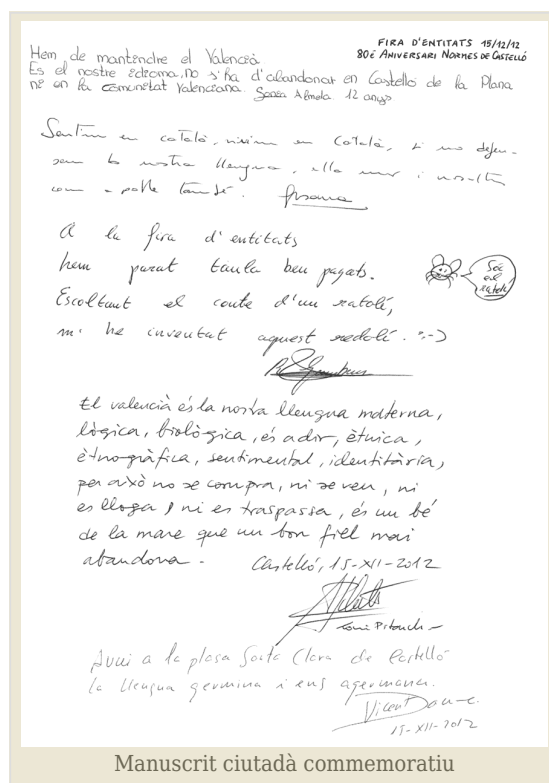 FIRA D'ENTITATS 15/12/12
80è ANIVERSARI NORMES DE CASTELLÓ
Hem de mantendre el Valencià
Es el nostre idioma, no s'ha d'abandonar en Castelló de la Plana
ni en la comunitat Valenciana. Almela 12 anys
Sentim en català, vivim en Català, si no defen-
sem la nostra llengua, ella mor i nosaltres
com a poble també.
A la fira d'entitats
hem parat taula ben pagats.
Escoltant el conte d'un ratolí,
m'he inventat aquest redolí. :-)
Sóc
el
ratolí
El valencià és la nostra llengua materna,
lògica, biològica, és a dir, ètnica,
ètnogràfica, sentimental, identitària,
per això no se compra, ni se ven, ni
es lloga, ni es traspassa, és un bé
de la mare que un bon fiel mai
abandona. Castelló, 15-XII-2012
Pitarch
Avui a la plasa Santa Clara de Castelló
la llengua germina i ens agermana.
Vicent
15-XII-2012
Manuscrit ciutadà commemoratiu